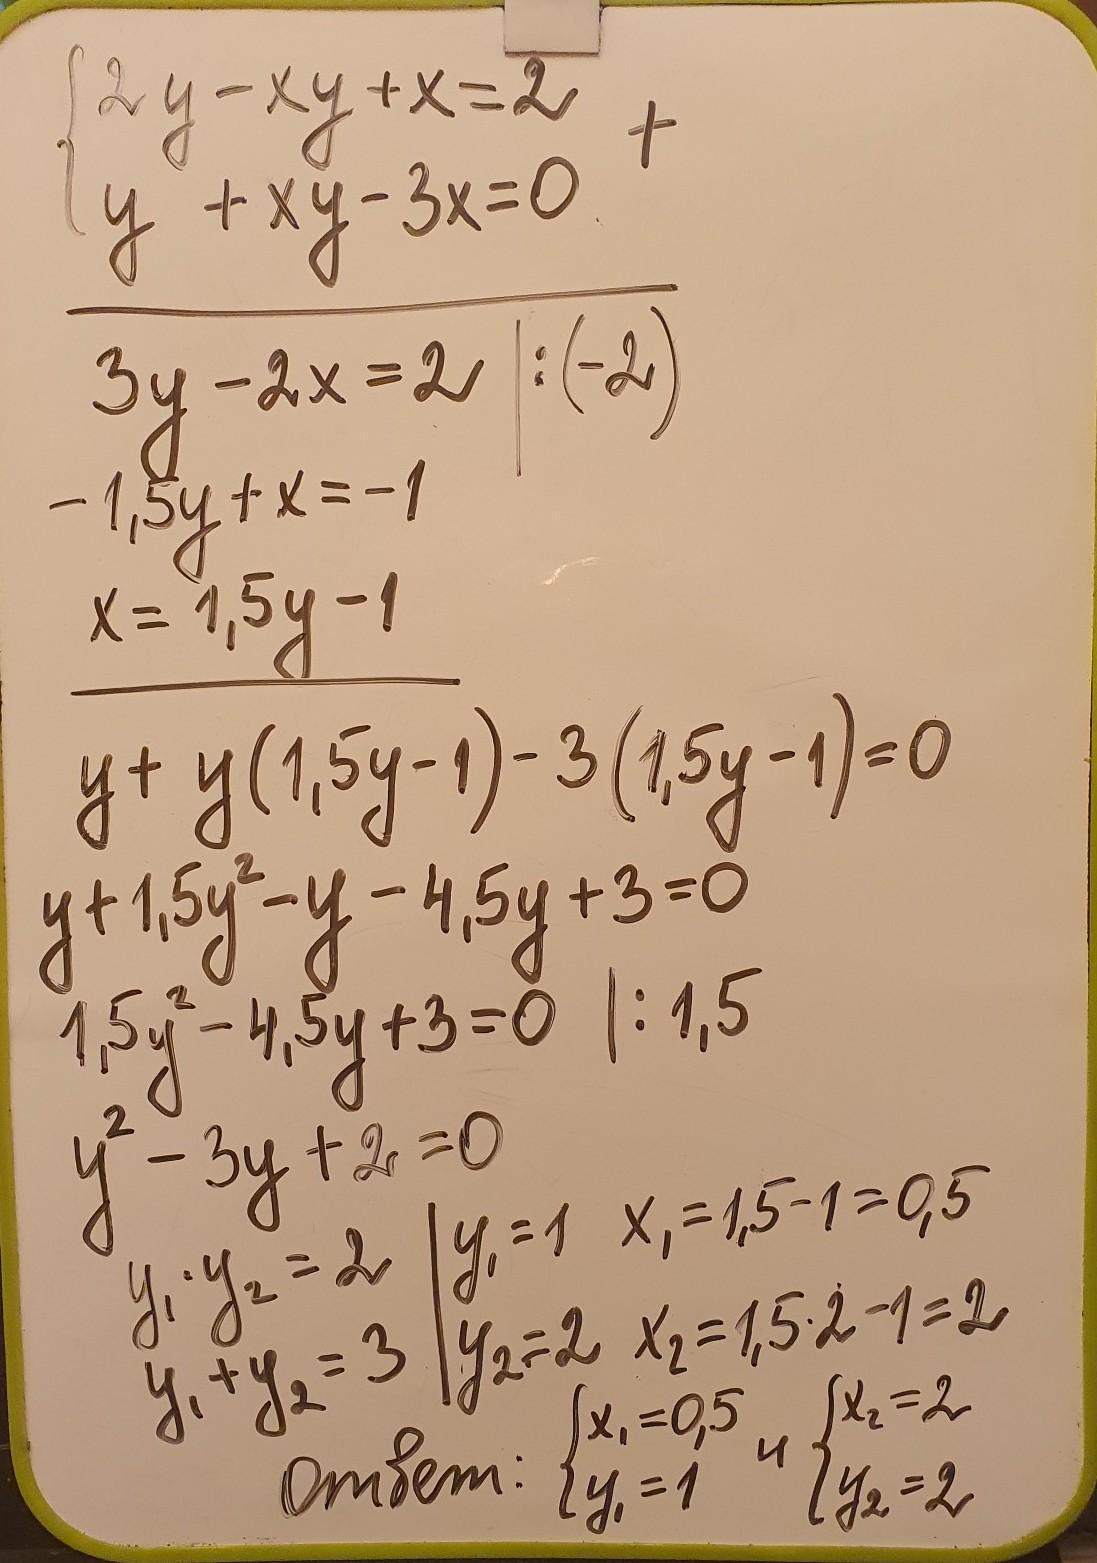 {2y - xy + x = 2
{y + xy - 3x = 0 +
3y - 2x = 2 | : (-2)
-1,5y + x = -1
x = 1,5y - 1
y + y(1,5y - 1) - 3(1,5y - 1) = 0
y + 1,5y² - y - 4,5y + 3 = 0
1,5y² - 4,5y + 3 = 0 | : 1,5
y² - 3y + 2 = 0
y₁ · y₂ = 2 | y₁ = 1 x₁ = 1,5 - 1 = 0,5
y₁ + y₂ = 3 | y₂ = 2 x₂ = 1,5 · 2 - 1 = 2
Ответ: {x₁ = 0,5 и {x₂ = 2
{y₁ = 1 {y₂ = 2